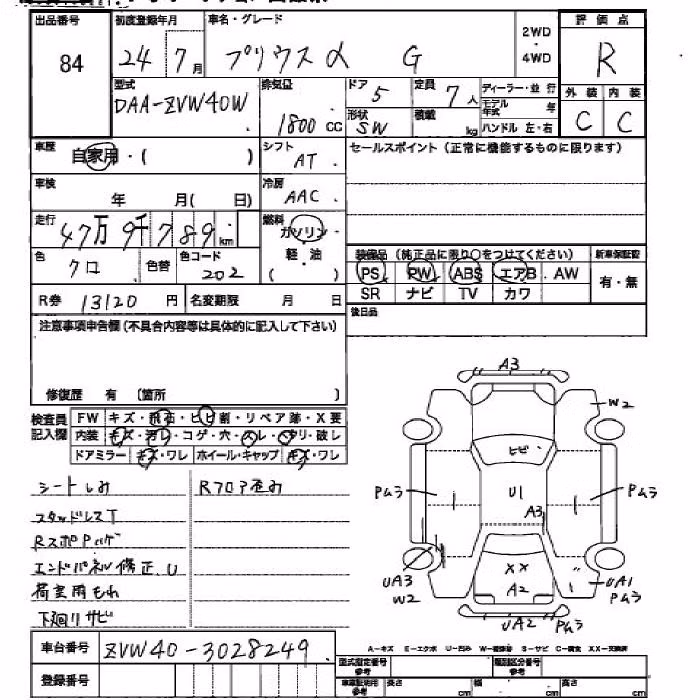 出品番号 初度登録年月 車名・グレード 2WD・4WD 評価点
84 24年7月 プリウスα G R
型式 排気量 ドア 定員 ディーラー・並行 外装 内装
DAA-ZVW40W 1800cc 5 7人 モデル年式 年 C C
形状 SW 積載 kg ハンドル 左・右
車歴 自家用・( ) シフト AT セールスポイント (正常に機能するものに限ります)
車検 年 月( 日) 冷房 AAC
走行 47万9千789km 燃料 ガソリン・軽油 ( )
色 クロ 色替 色コード 202
装備品 (純正品に限り○をつけてください) 新車保証書
PS PW ABS エアB AW 有・無
SR ナビ TV カワ
R券 13120円 名変期限 月 日 後日品
注意事項申告欄(不具合内容等は具体的に記入して下さい)
修復歴 有 〔箇所 〕
検査員記入欄 FW キズ・飛石・ヒビ割・リペア跡・X要
内装 キズ・汚レ・コゲ・穴・スレ・ヘタリ・破レ
ドアミラー キズ・ワレ ホイール・キャップ キズ・ワレ
シートしみ Rフロア歪み
スタッドレスT
RスポPハゲ
エンドパネル修正、U
荷室雨もれ
下廻りサビ
A3
W2
ヒビ
Pムラ U1 Pムラ
A3
XX
A2
UA3
W2
UA1
Pムラ
UA2 Pムラ
車台番号 ZVW40-3028249
登録番号
A-キズ E-エクボ U-凹み W-補修跡 S-サビ C-腐食 XX-交換済
型式指定番号 参考 類別区分番号 参考
車庫証明用 参考 長さ cm 幅 cm 高さ cm